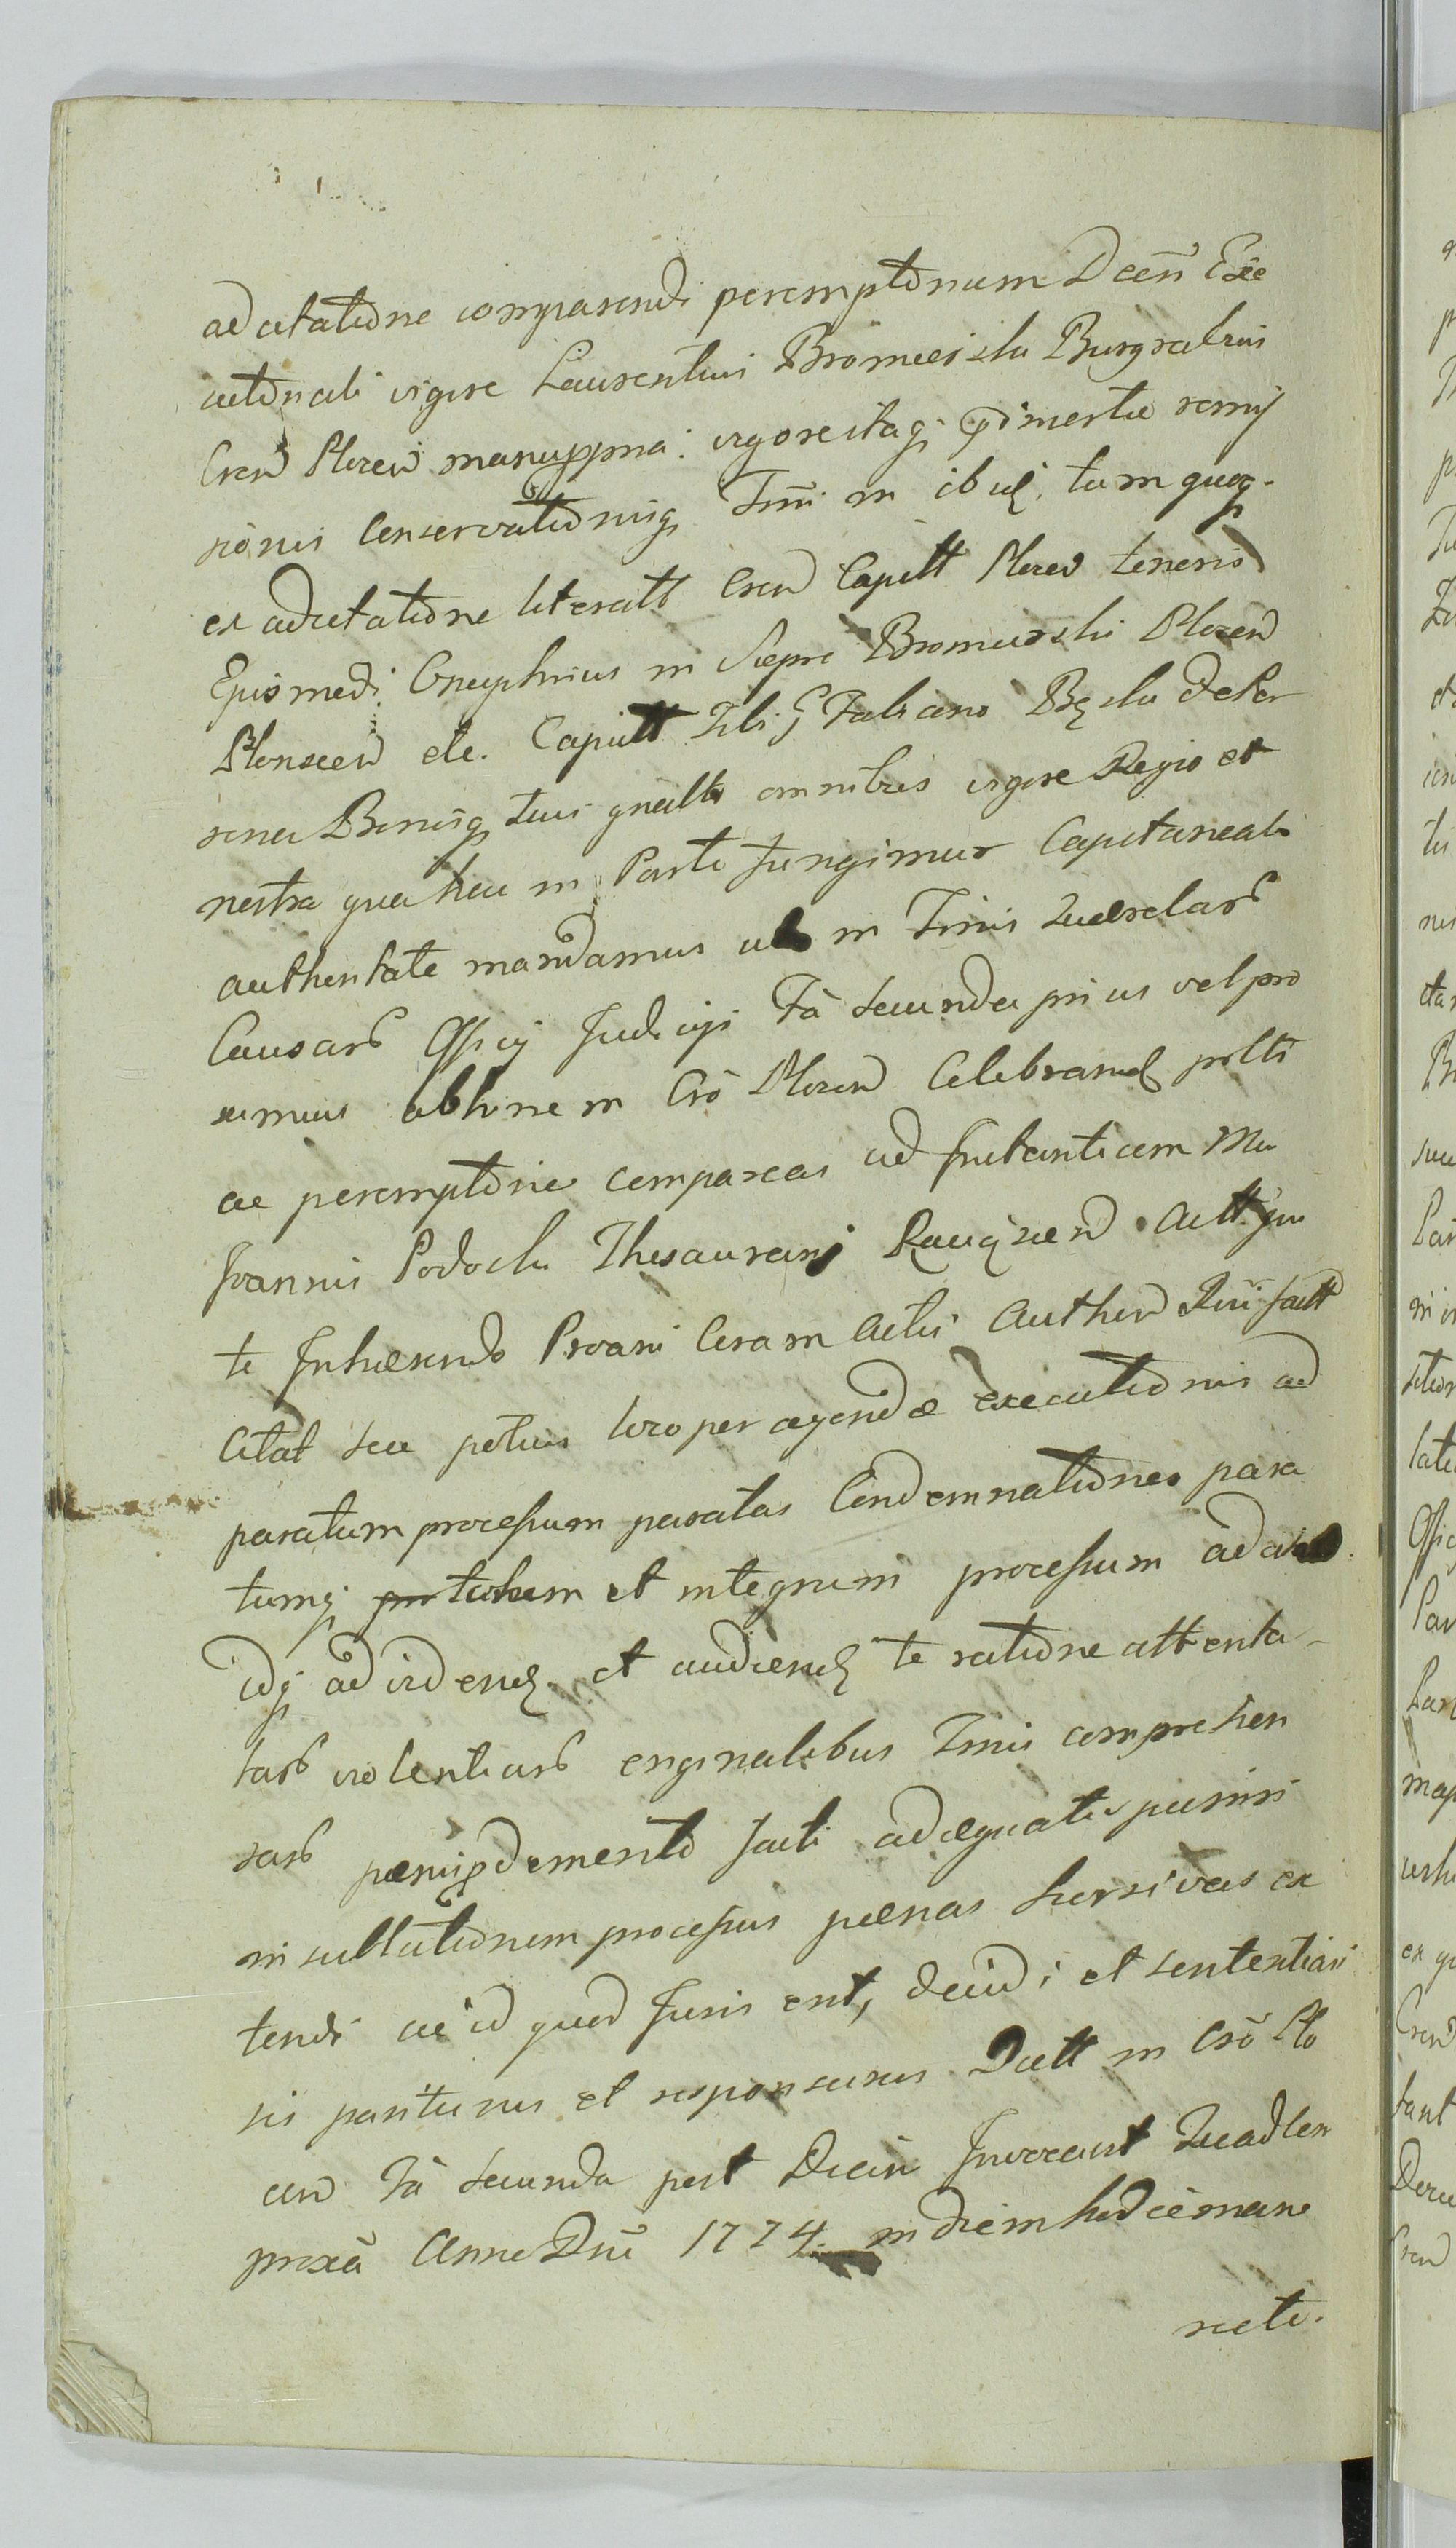 adcitatione comparendi peremptorium Decn Exe
cutionali vigore Laurentius Bromirski Burgrabius
Cren Plocen manuppria: vigore itaq; pdmertæ remis
sionis Conservationisq; Tmi in ibid. tumquoq.
ex adcitatione literatt Cren Capitt Plocen tenoris
Ejusmodi. Onuphrius in Siepre Bromirski Plocen
Plonscen etc. Capitt Tibi G Fabiano Bęski de Per
sona Bonisq; tuis gnaltr omnibus vigore Regio et
nostra qua hac in Parte fungimur Capitaneali
authoritate mandamus ut in Tmis Quærelarb
Causarb Officij Judicija Fa secunda prius vel pro
ximius abhinc in Cro Plocen Celebrand poltr
ac peremptorie compareas ad Instantiam M
Joannis Podoski Thesaurarij Rauczen Actt qui
te Inhærendo Proani Coram Actis Authen Rni factt
Citat seu potius loco per agendæ executionis ad
paratum processum paratas Condemnationes para
tumq; totum et integrum processum adcitat
idq; ad videnđ. et audienđ te ratione attenta
tarb violentiarb originalibus Tmis comprehen
sarb pænis pdemerito facti adæquatis puniri
insultationem processus pænas hersivas ex
tendi ac id quod Juris erit, decidi et sententiari
sis pariturus et responsurus Datt in Cro Plo
cen Fa secunda post Dncam Invocavit Quadlem
proxa Anno Dni 1774. in diem hodiernam
recte.